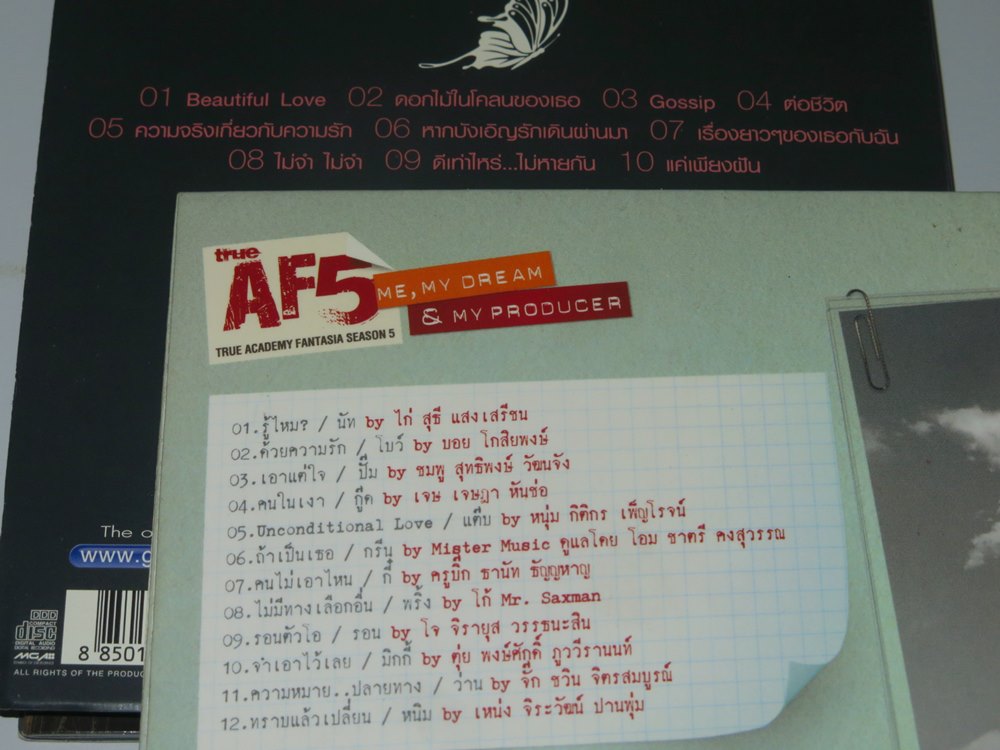 01 Beautiful Love 02 ดอกไม้ในโคลนของเธอ 03 Gossip 04 ต่อชีวิต
05 ความจริงเกี่ยวกับความรัก 06 หากบังเอิญรักเดินผ่านมา 07 เรื่องยาวๆของเธอกับฉัน
08 ไม่จำ ไม่จำ 09 ดีเท่าไหร่...ไม่หายกัน 10 แค่เพียงฝัน
true
AF5
ME, MY DREAM
& MY PRODUCER
TRUE ACADEMY FANTASIA SEASON 5
01.รู้ไหม? / นัท by ไก่ สุธี แสงเสรีชน
02.ด้วยความรัก / โบว์ by บอย โกสิยพงษ์
03.เอาแต่ใจ / ปั๊ม by ชมพู สุทธิพงษ์ วัฒนจัง
04.คนในเงา / กู๊ด by เจษ เจษฎา หันช่อ
05.Unconditional Love / แต๊บ by หนุ่ม กิติกร เพ็ญโรจน์
06.ถ้าเป็นเธอ / กรีน by Mister Music ดูแลโดย โอม ชาตรี คงสุวรรณ
07.คนไม่เอาไหน / กี๋ by ครูบิ๊ก ธานัท ธัญญหาญ
08.ไม่มีทางเลือกอื่น / พริ้ง by โก้ Mr. Saxman
09.รอนตัวโอ / รอน by โจ จิรายุส วรรธนะสิน
10.จำเอาไว้เลย / มิกกี้ by ตุ่ย พงษ์ศักดิ์ ภูววีรานนท์
11.ความหมาย..ปลายทาง / ว่าน by จั๊ก ชวิน จิตรสมบูรณ์
12.ทราบแล้วเปลี่ยน / หนิม by เหน่ง จิระวัฒน์ ปานพุ่ม
The o
www.g
DDD
COMPACT
disc
DIGITAL AUDIO
MGA
8 8501
ALL RIGHTS OF THE PRODUC